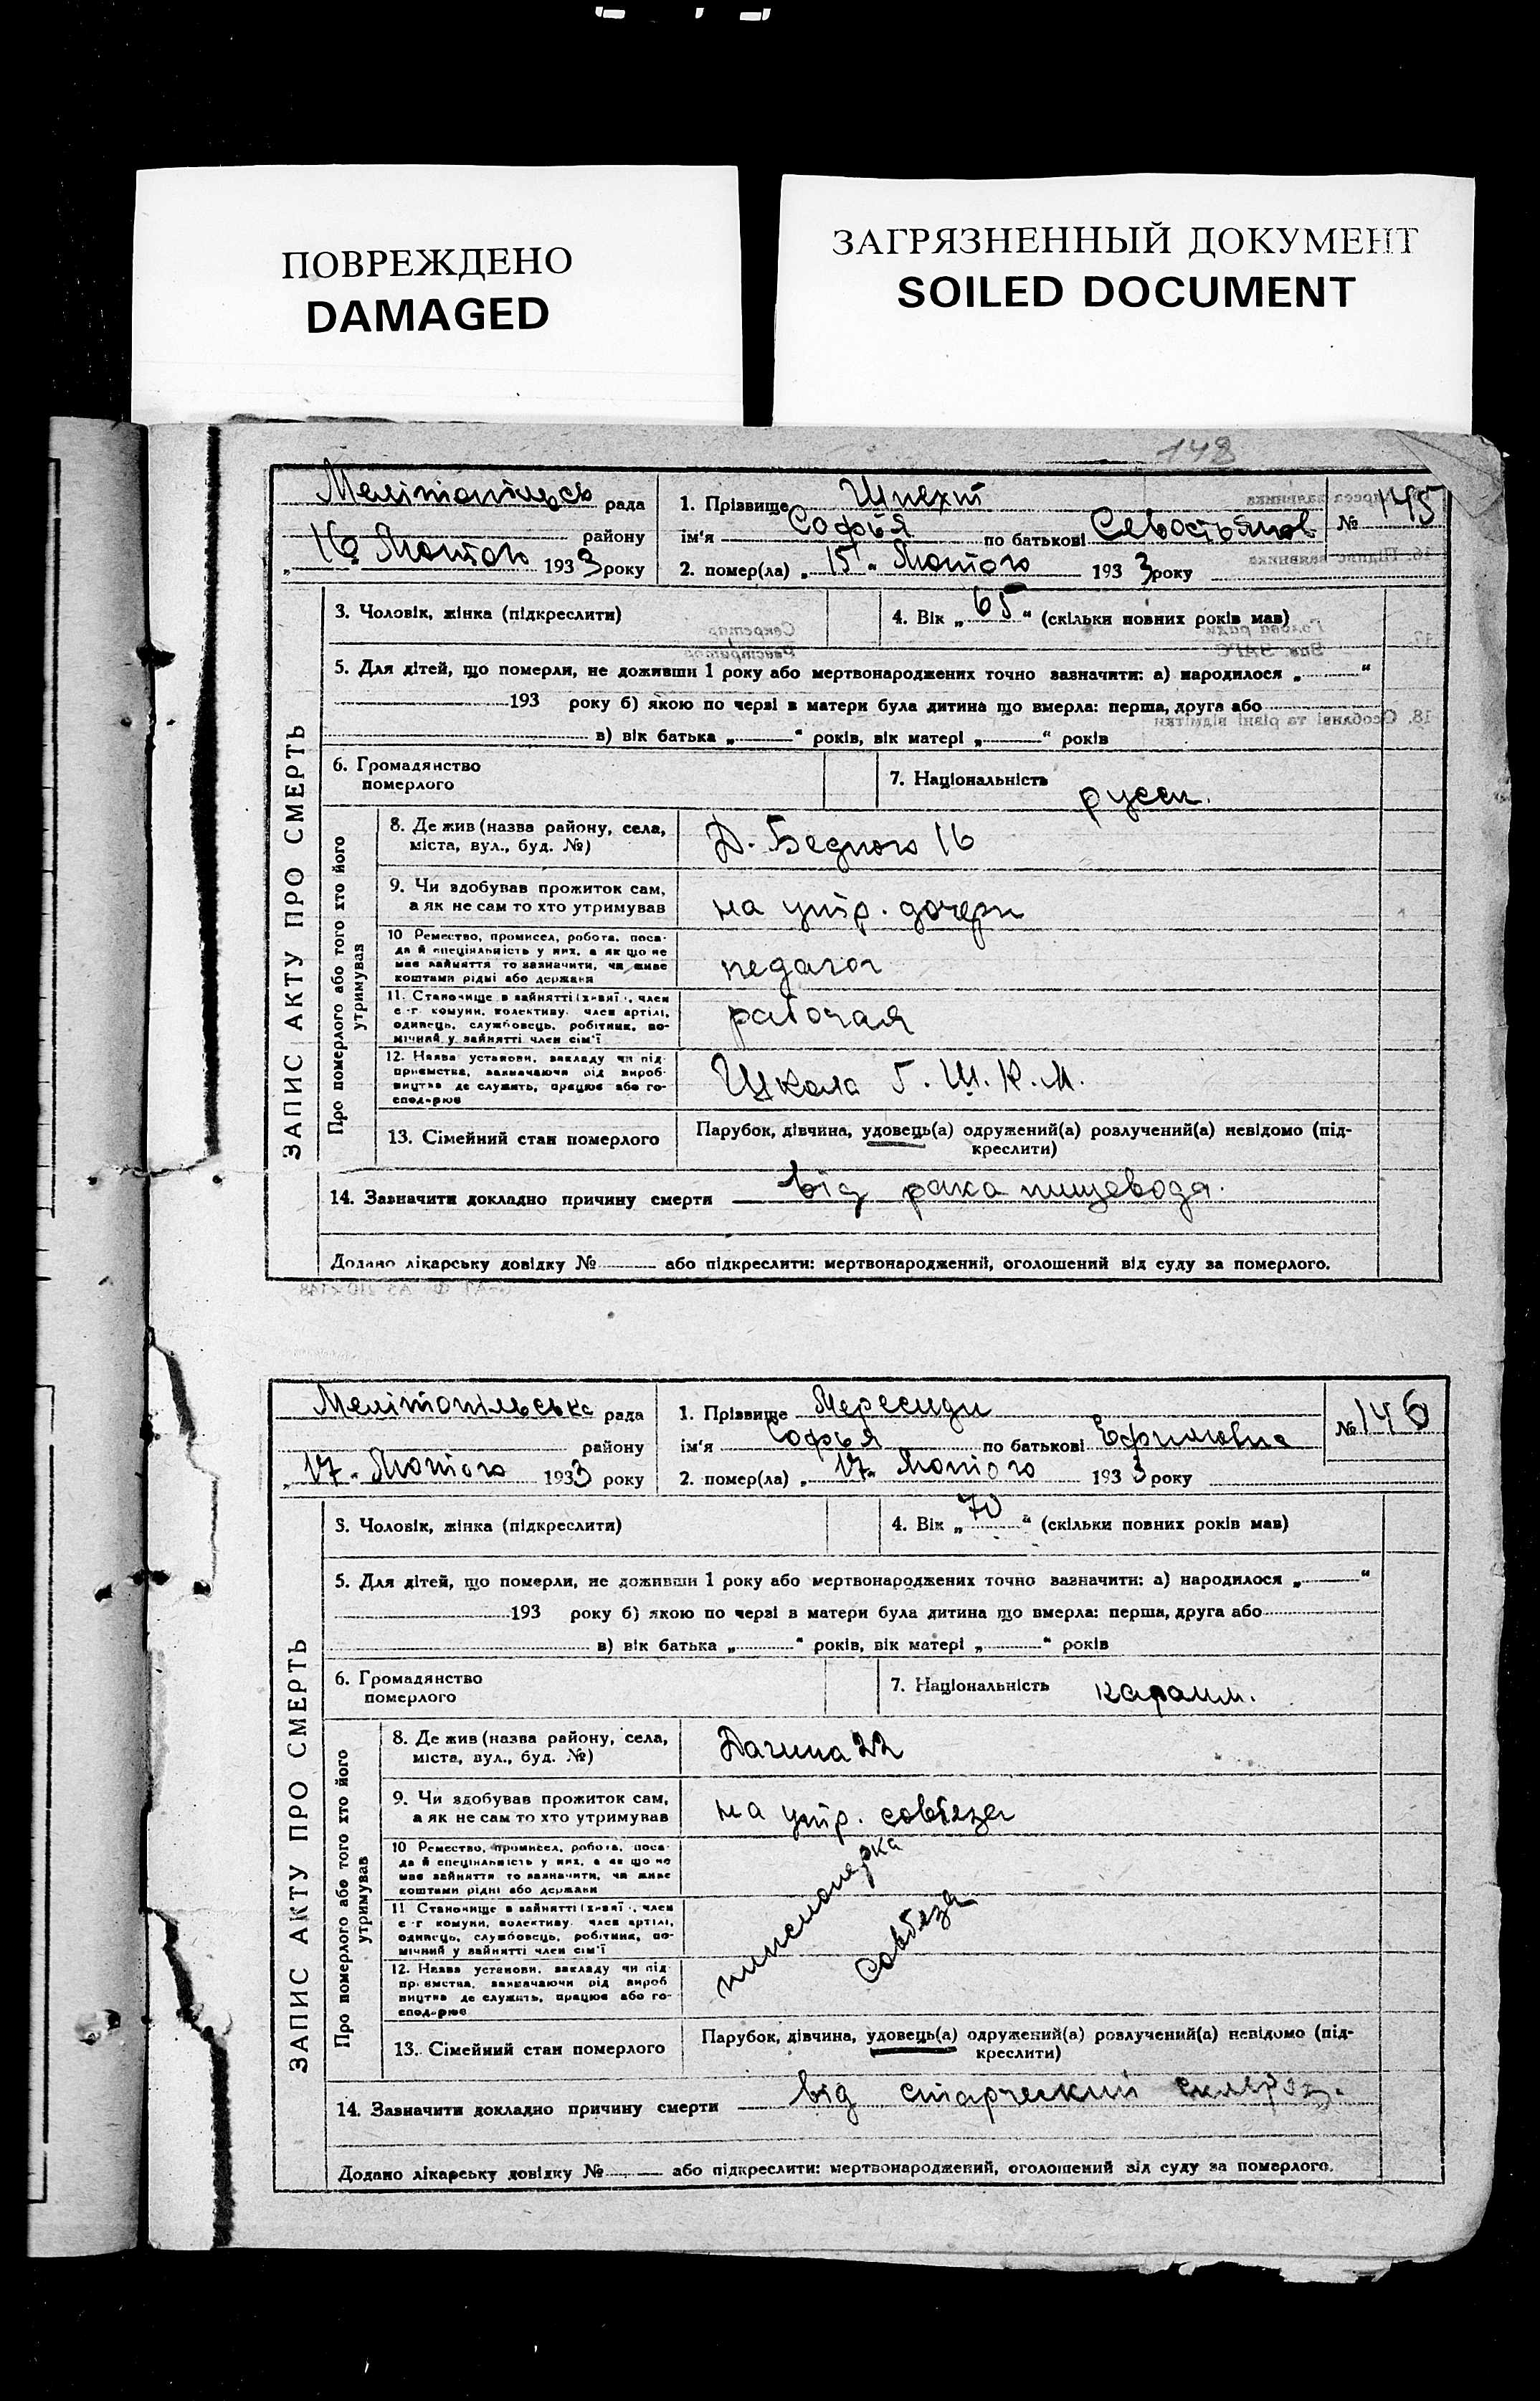 ПОВРЕЖДЕНО
DAMAGED
ЗАГРЯЗНЕННЫЙ ДОКУМЕНТ
SOILED DOCUMENT
148
ЗАПИС АКТУ ПРО СМЕРТЬ
Мелітопільсь рада
району
„16" Лютого 1933 року
1. Прізвище Шпехт
ім'я Софья по батькові Севостьянов
2. помер(ла) „15" Лютого 1933 року
№ 145
3. Чоловік, жінка (підкреслити)
4. Вік „65" (скільки повних років мав)
5. Для дітей, що померли, не доживши 1 року або мертвонароджених точно зазначити: а) народилося „ "
193 року б) якою по черзі в матери була дитина що вмерла: перша, друга або
в) вік батька „ " років, вік матері „ " років
6. Громадянство
померлого
7. Національність русск.
Про померлого або того хто його
утримував
8. Де жив (назва району, села,
міста, вул., буд. №)
Д. Бедного 16
9. Чи здобував прожиток сам,
а як не сам то хто утримував
на утр. дочери
10 Ремество, промисел, робота, поса-
да й спеціяльність у них, а як що не
має зайняття то зазначити, чи живе
коштами рідні або держави
педагог
11. Становище в зайнятті (хазяї , член
с-г комуни, колективу, член артілі,
одинець, службовець, робітник, по-
мічний у зайнятті член сім'ї
рабочая
12. Назва установи, закладу чи під-
приємства, зазначаючи рід вироб-
ництва де служить, працює або го-
сподарює
Школа Г. Ш. К. М.
13. Сімейний стан померлого
Парубок, дівчина, удовець(а) одружений(а) розлучений(а) невідомо (під-
креслити)
14. Зазначити докладно причину смерти від рака пищевода.
Додано лікарську довідку № або підкреслити: мертвонароджений, оголошений від суду за померлого.
ЗАПИС АКТУ ПРО СМЕРТЬ
Мелітопільська рада
району
„17" Лютого 1933 року
1. Прізвище
ім'я Софья по батькові Ефимовна
2. помер(ла) „17" Лютого 1933 року
№ 146
3. Чоловік, жінка (підкреслити)
4. Вік „70" (скільки повних років мав)
5. Для дітей, що померли, не доживши 1 року або мертвонароджених точно зазначити: а) народилося „ "
193 року б) якою по черзі в матери була дитина що вмерла: перша, друга або
в) вік батька „ " років, вік матері „ " років
6. Громадянство
померлого
7. Національність караим.
Про померлого або того хто його
утримував
8. Де жив (назва району, села,
міста, вул., буд. №)
22
9. Чи здобував прожиток сам,
а як не сам то хто утримував
на утр. собеза
10 Ремество, промисел, робота, поса-
да й спеціяльність у них, а як що не
має зайняття то зазначити, чи живе
коштами рідні або держави
11 Становище в зайнятті (хазяї , член
с-г комуни, колективу, член артілі,
одинець, службовець, робітник, по-
мічний у зайнятті член сім'ї
12. Назва установи, закладу чи під-
приємства, зазначаючи рід вироб-
ництва де служить, працює або го-
сподарює
пинсионерка
собеза
13. Сімейний стан померлого
Парубок, дівчина, удовець(а) одружений(а) розлучений(а) невідомо (під-
креслити)
14. Зазначити докладно причину смерти від старческий склероз.
Додано лікарську довідку № або підкреслити: мертвонароджений, оголошений від суду за померлого.